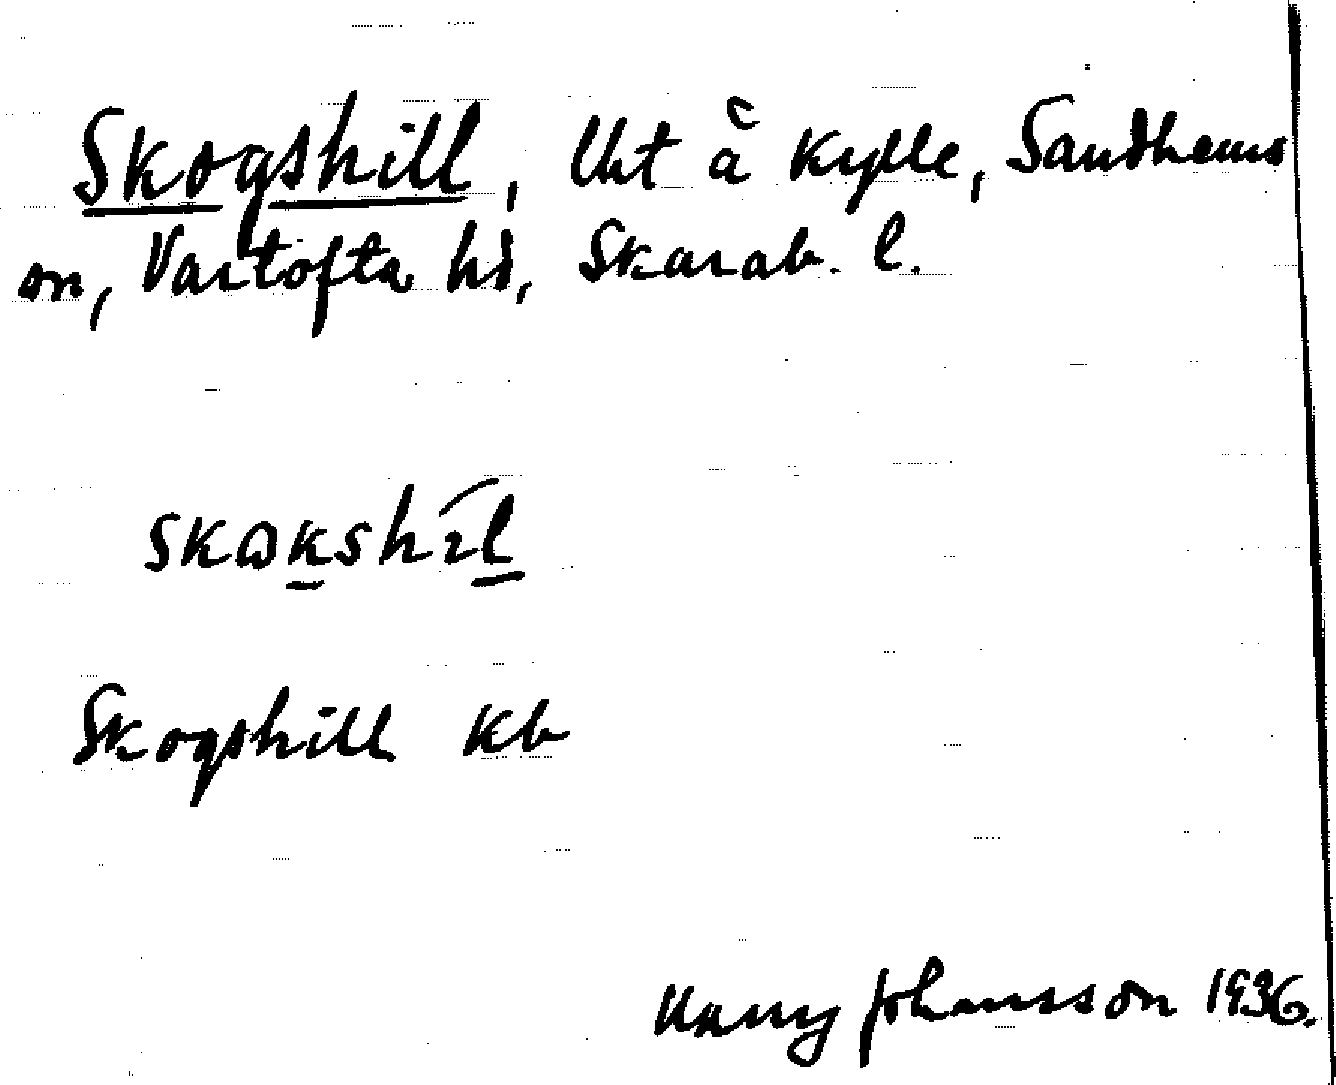 Skogshill, Uht å Kylle, Sandhems
sn, Vartofta hd, Skarab. l.
skɷkshíl
Skogshill Kb
Harry Johansson 1936.